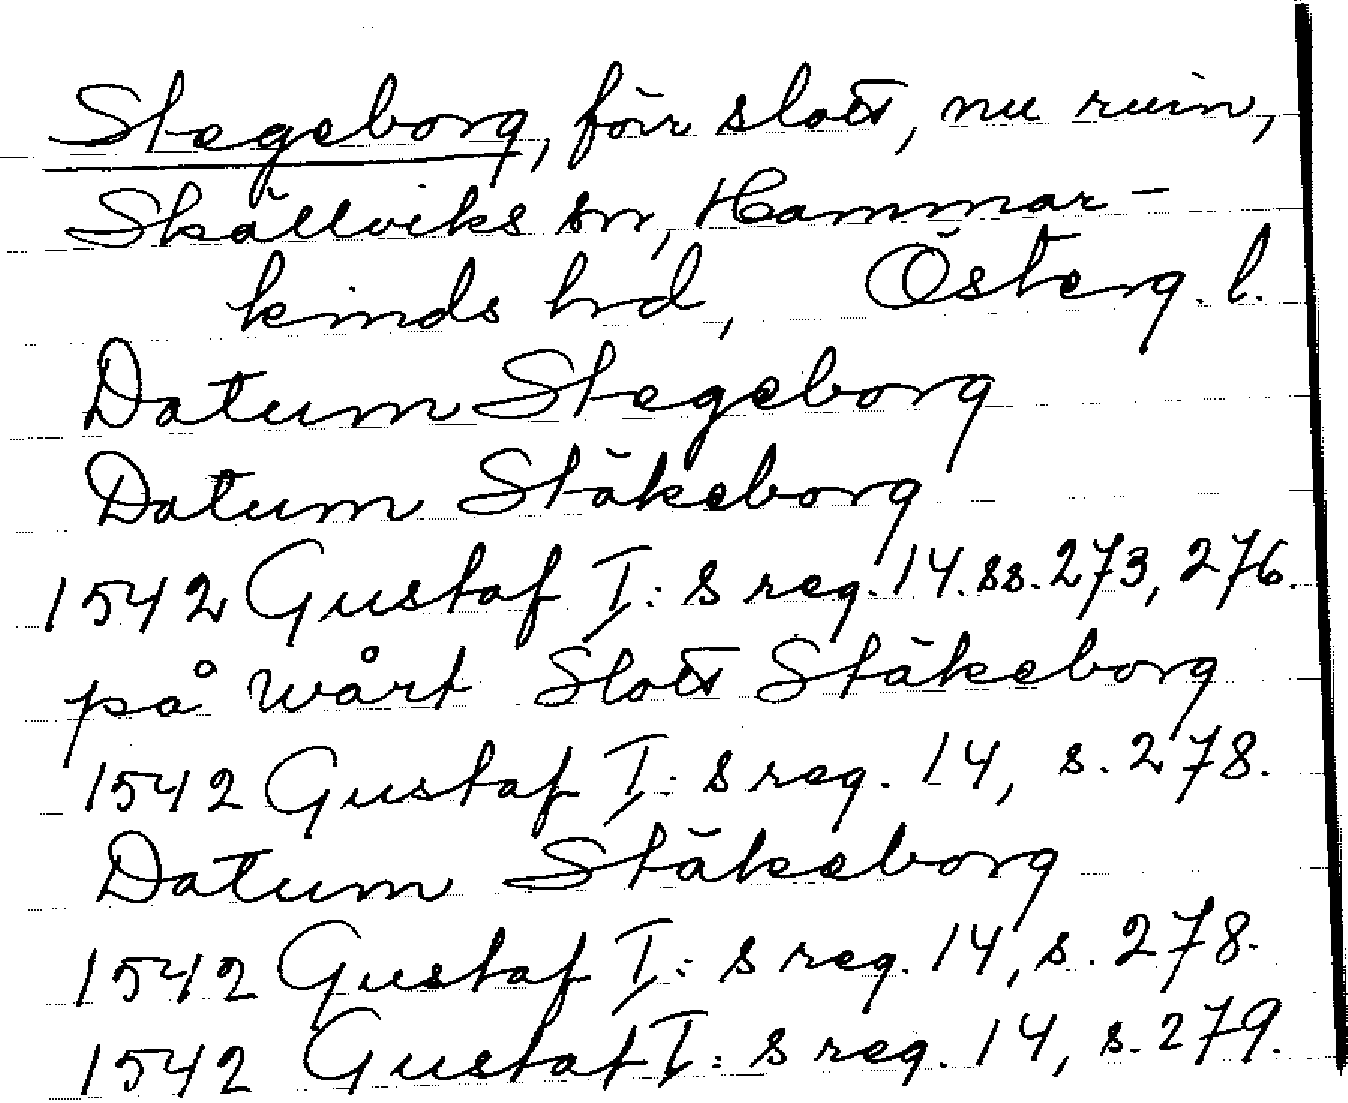 Stegeborg, förr slott, nu ruin,
Skällviks sn, Hammar-
kinds hrd, Österg. l.
Datum Stegeborg
Datum Stäkeborg
1542 Gustaf I:s reg. 14. ss. 273, 276.
på wårt Slott Stäkeborg
1542 Gustaf I:s reg. 14, s. 278.
Datum Stäkeborg
1542 Gustaf I:s reg. 14, s. 278.
1542 Gustaf I:s reg. 14, s. 279.